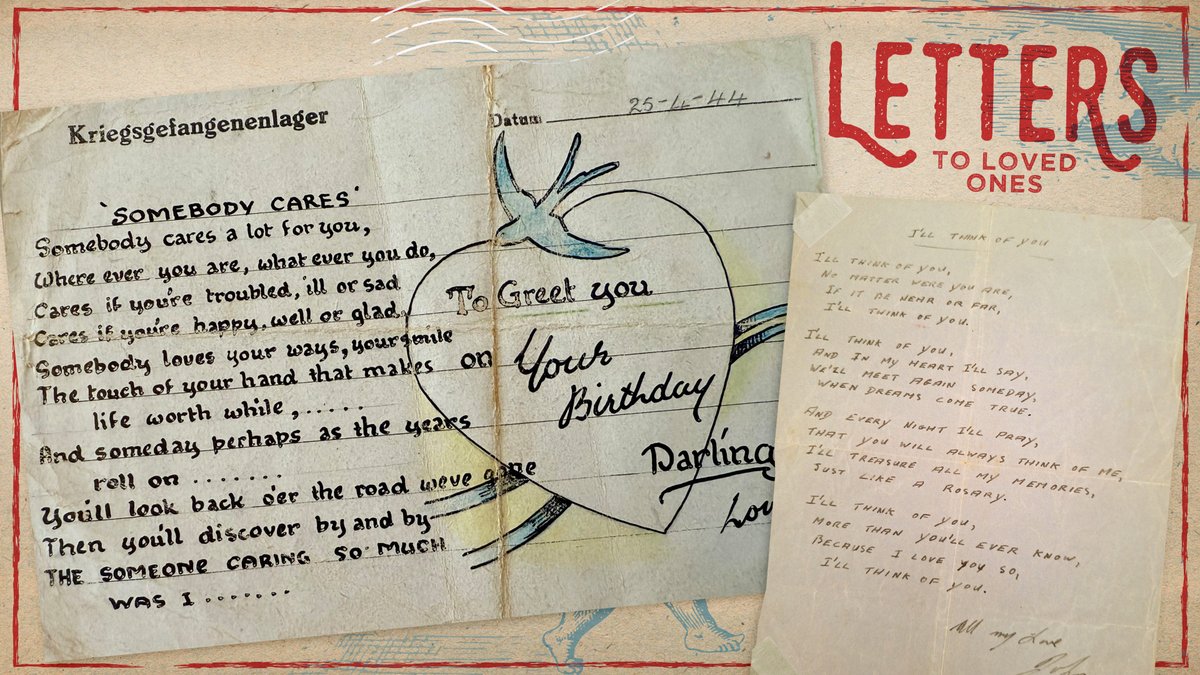 Kriegsgefangenenlager
Datum 25-4-44
'SOMEBODY CARES'
Somebody cares a lot for you,
Where ever you are, what ever you do,
Cares if you're troubled, ill or sad
Cares if you're happy, well or glad,
Somebody loves your ways, your smile
The touch of your hand that makes
life worth while,.....
And someday perhaps as the years
roll on ........
You'll look back o'er the road weve gone
Then you'll discover by and by
THE SOMEONE CARING SO MUCH
WAS I .......
To Greet you
on Your
Birthday
Darling
LETTERS
TO LOVED
ONES
I'LL THINK OF YOU
I'LL THINK OF YOU,
NO MATTER WERE YOU ARE,
IF IT BE NEAR OR FAR,
I'LL THINK OF YOU.
I'LL THINK OF YOU,
AND IN MY HEART I'LL SAY,
WE'LL MEET AGAIN SOMEDAY,
WHEN DREAMS COME TRUE.
AND EVERY NIGHT I'LL PRAY,
THAT YOU WILL ALWAYS THINK OF ME,
I'LL TREASURE ALL MY MEMORIES,
JUST LIKE A ROSARY.
I'LL THINK OF YOU,
MORE THAN YOU'LL EVER KNOW,
BECAUSE I LOVE YOU SO,
I'LL THINK OF YOU.
All my Love